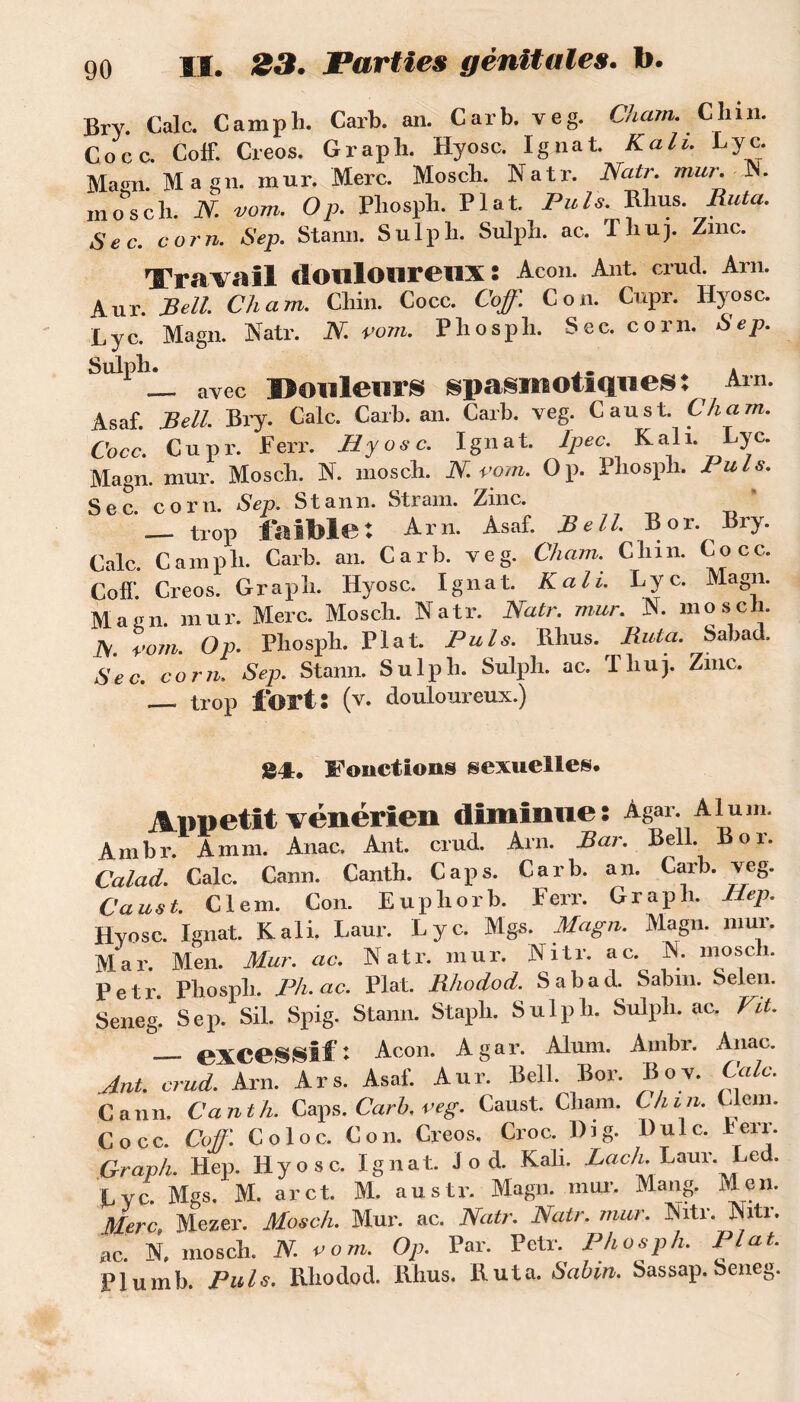 90 II. 23. Parties génitales. b.
Bry. Calc. Camph. Carb. an. Carb. veg. Cham. Chin.
Cocc. Coff. Creos. Graph. Hyosc. Ignat. Kali. Lyc.
Magn. Magn. mur. Merc. Mosch. Natr. Natr. mur. N.
mosch. N. vom. Op. Phosph. Plat. Puls. Rhus. Ruta.
Sec. corn. Sep. Stann. Sulph. Sulph. ac. Thuj. Zinc.
Travail douloureux: Acon. Ant. crud. Arn.
Aur. Bell. Cham. Chin. Cocc. Coff. Con. Cupr. Hyosc.
Lyc. Magn. Natr. N. vom. Phosph. Sec. corn. Sep.
Sulph.
— avec Douleurs spasmotiques: Arn.
Asaf. Bell. Bry. Calc. Carb. an. Carb. veg. Caust. Cham.
Cocc. Cupr. Ferr. Hyosc. Ignat. Ipec. Kali. Lyc.
Magn. mur. Mosch. N. mosch. N. vom. Op. Phosph. Puls.
Sec. corn. Sep. Stann. Stram. Zinc.
— trop faible: Arn. Asaf. Bell. Bor. Bry.
Calc. Camph. Carb. an. Carb. veg. Cham. Chin. Cocc.
Coff. Creos. Graph. Hyosc. Ignat. Kali. Lyc. Magn.
Magn. mur. Merc. Mosch. Natr. Natr. mur. N. mosch.
N. vom. Op. Phosph. Plat. Puls. Rhus. Ruta. Sabad.
Sec. corn. Sep. Stann. Sulph. Sulph. ac. Thuj. Zinc.
— trop fort: (v. douloureux.)
24. Fonctions sexuelles.
Appetit vénérien diminue: Agar. Alum.
Ambr. Amm. Anac. Ant. crud. Arn. Bar. Bell. Bor.
Calad. Calc. Cann. Canth. Caps. Carb. an. Carb. veg.
Caust. Clem. Con. Euphorb. Ferr. Graph. Hep.
Hyosc. Ignat. Kali. Laur. Lyc. Mgs. Magn. Magn. mur.
Mar. Men. Mur. ac. Natr. mur. Nitr. ac. N. mosch.
Petr. Phosph. Ph. ac. Plat. Rhodod. Sabad. Sabin. Selen.
Seneg. Sep. Sil. Spig. Stann. Staph. Sulph. Sulph. ac. Vit.
— excessif: Acon. Agar. Alum. Ambr. Anac.
Ant. crud. Arn. Ars. Asaf. Aur. Bell. Bor. Bov. Calc.
Cann. Canth. Caps. Carb. veg. Caust. Cham. Chin. Clem.
Cocc. Coff. Coloc. Con. Creos. Croc. Dig. Dulc. Ferr.
Graph. Hep. Hyosc. Ignat. Jod. Kali. Lach. Laur. Led.
Lyc. Mgs. M. arct. M. austr. Magn. mur. Mang. Men.
Merc. Mezer. Mosch. Mur. ac. Natr. Natr. mur. Nitr. Nitr.
ac. N. mosch. N. vom. Op. Par. Petr. Phosph. Plat.
Plumb. Puls. Rhodod. Rhus. Ruta. Sabin. Sassap. Seneg.